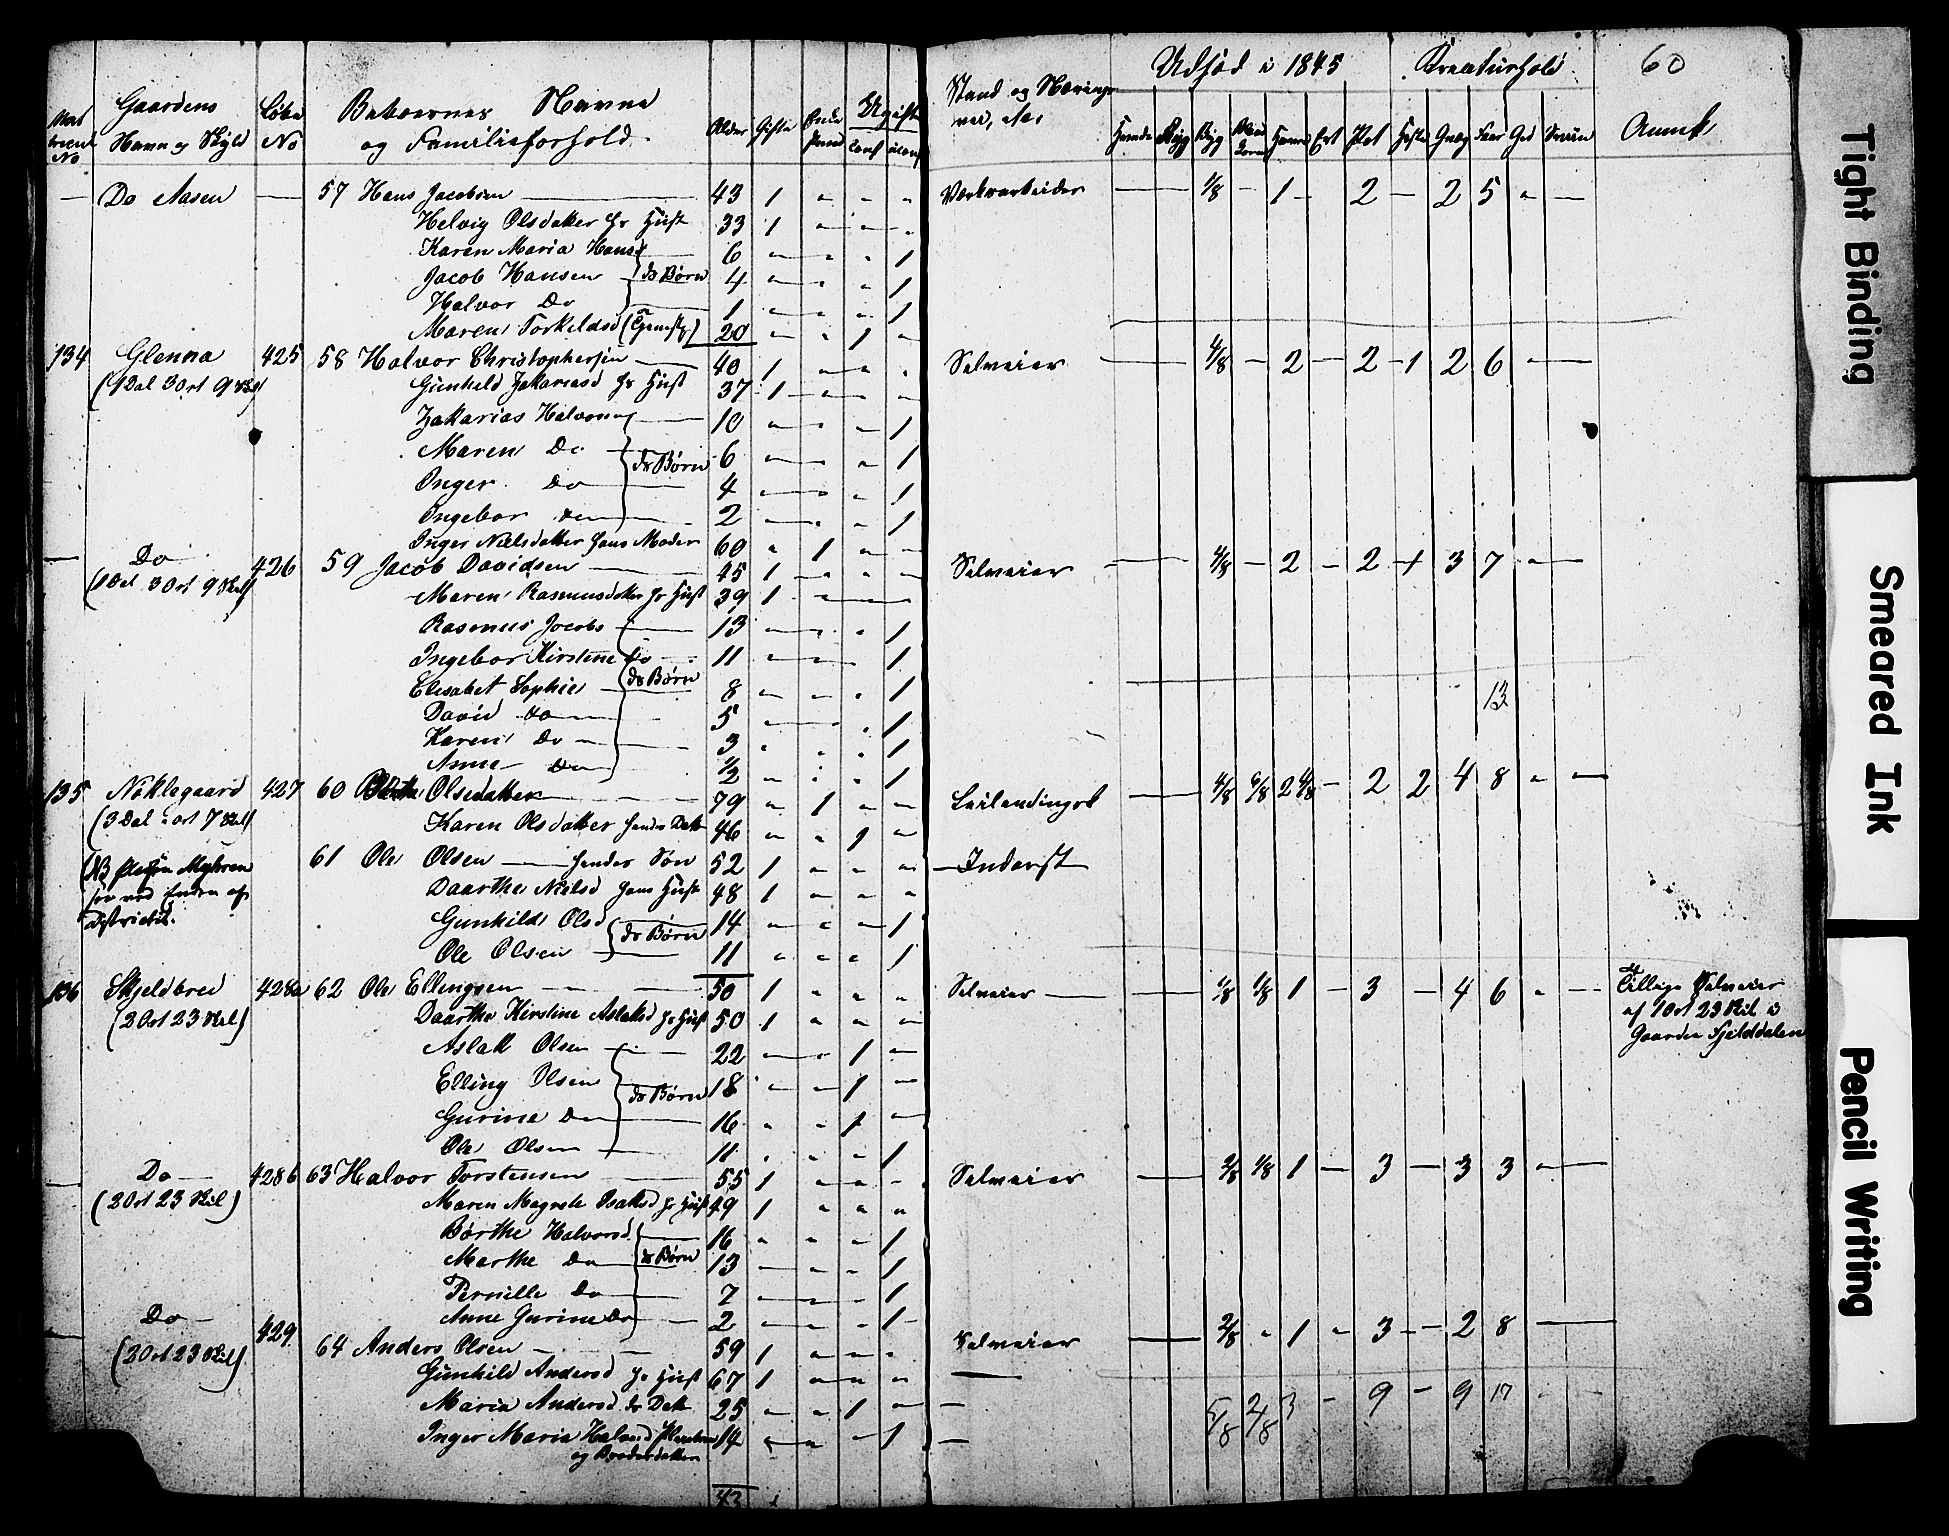 Udsæd i 1845 Kreaturhold 60
Gaardens Navn og Skyld Løbe No Beboernes Navne og Familieforhold Alder Gifte Ugifte Stand og Nærings Byg Havre Ert Pot Heste Svin Anmk
Do Aasen — 57 Hans Jacobsen — 43 1 " " " Værksarbeider — 1/8 - 1 - 2 - 2 5 " —
Helvig Olsdatter hs Hust 33 1
Karen Maria Hansd — 6 1
Jacob Hansen — ds Børn 4 1
Halvor Do 1 1
Maren Torkildsd 20 1
134 Glenna 425 58 Halvor Christophersen — 40 1 Selveier — 4/8 - 2 - 2 - 1 2 6 " —
(1 Dal 3 Ort 9 Skl) Gunhild Zakariasd hs Hust 37 1
Zakarias Halvorsen — 10 1
Maren Do — ds Børn 6 1
Inger Do — 4 1
Ingebor Do — 2 1
Inger Nielsdatter hans Moder 60 1
— Do 426 59 Jacob Davidsen — 45 1 Selveier — 4/8 - 2 - 2 - 1 3 7 " —
(1 Dal 3 Ort 9 Skl) Maren Rasmusdatter hs Hust 39 1
Rasmus Jacobs — 13 1
Ingebor Kirstine Do — 11 1
Elisabet Sophie — ds Børn 8 1
13
David do — 5 1
Karen Do — 3 1
Anne do 1/2 1
135 427 60 Olsdatter — 79 1 Leilending — 4/8 6/8 2 4/8 - 2 2 4 8 " —
(3 Dal " ort 7 Skl) Karen Olsdatter hendes Datt 46 1
61 Ole Olsen — hendes Søn 52 1 — Inderst
Daarthe Nielsd hans Hust 48 1
Gunhild Olsd — 14 1
Districtet. Ole Olsen — ds Børn 11 1
136 Skjeldbred 428a 62 Ole Ellingsen — 50 1 Selveier — 1/8 1 - 3 - 4 6 " — Tillige Selveier
(2 Ort 23 Skl) Daarthe Kirstine Aslaksd hs Hust 50 1 af 1 Ort 23 Skil i
Aslak Olsen — 22 1 Gaarden Fjelddalen
Elling Olsen — ds Børn 18 1
Gurine Do — 16 1
Ole Olsen — 11 1
— Do 428b 63 Halvor Torstensen — 55 1 Selveier — 2/8 1/8 1 - 3 - 3 3 " —
(2 Ort 23 Skl) Maren Magrete Isaksd hs Hust 49 1
Børthe Halvorsd — 16 1
Marthe Do — ds Børn 13 1
Pernille Do — 7 1
Anne Gurine Do — 2 1
— Do 429 64 Anders Olsen — 59 1 Selveier — 2/8 " 1 " 3 - - 2 8 " —
(2 Ort 23 Skl) Gunhild Andersd hs Hust 67 1 —
Maria Andersd ds Datt 25 1 — 5/8 2/8 3 - 9 - 9 17
Inger Maria Halvsd 14 1 —
og Broderdatter
43
Tight Binding
Smeared Ink
Pencil Writing